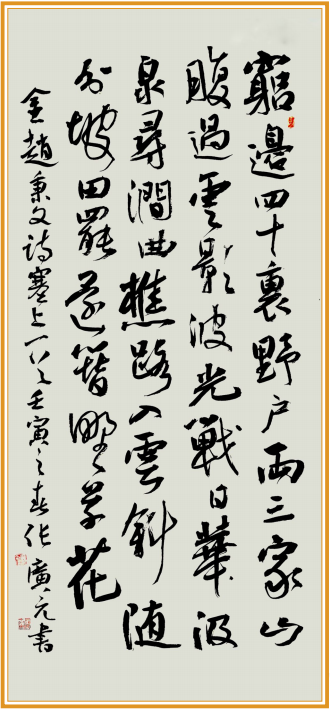 窮邊四十裏野戶兩三家山
腹過雲影波光戰日華汲
泉尋澗曲樵路入雲斜随
分坡田罷還簪野草花
金趙秉文詩塞上 壬寅之春作 廣元書